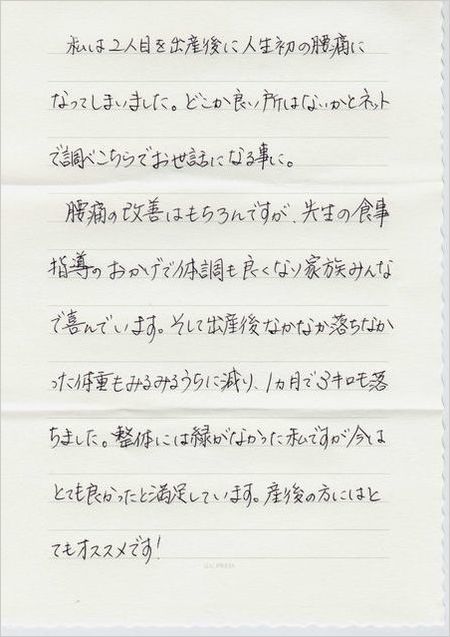 私は2人目を出産後に人生初の腰痛に
なってしまいました。どこか良い所はないかとネット
で調べこちらでお世話になる事に。
腰痛の改善はもちろんですが、先生の食事
指導のおかげで体調も良くなり家族みんな
で喜んでいます。そして出産後なかなか落ちなか
った体重もみるみるうちに減り、1ヵ月で3キロも落
ちました。整体には縁がなかった私ですが今は
とても良かったと満足しています。産後の方にはと
てもオススメです!